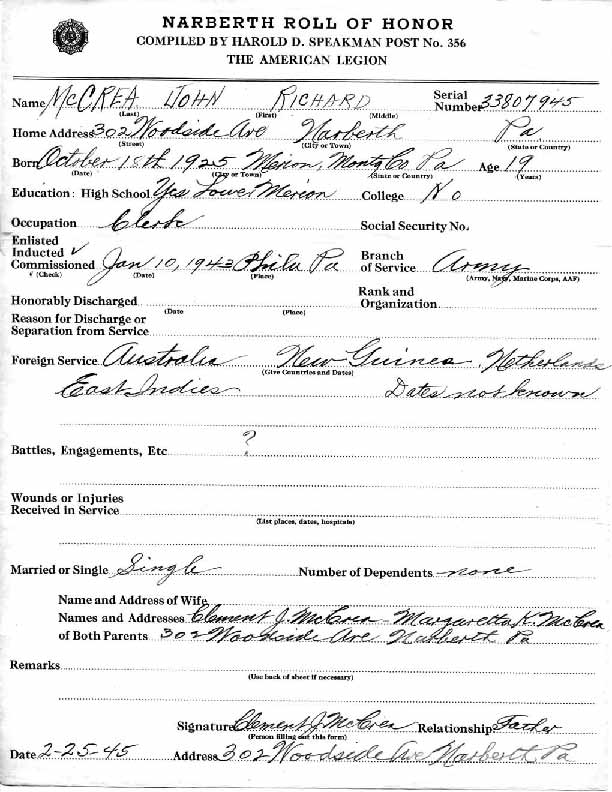 NARBERTH ROLL OF HONOR
COMPILED BY HAROLD D. SPEAKMAN POST No. 356
THE AMERICAN LEGION
Name McCREA JOHN RICHARD Serial Number 33807945
(Last) (First) (Middle)
Home Address 302 Woodside Ave Narberth Pa
(Street) (City or Town) (State or Country)
Born October 18th 1925 Merion, Montg Co. Pa Age 19
(Date) (City or Town) (State or Country) (Years)
Education: High School Yes Lower Merion College No
Occupation Clerk Social Security No.
Enlisted
Inducted ✓ Branch
Commissioned Jan 10, 1943 Phila Pa of Service Army
(Check) (Date) (Place) (Army, Navy, Marine Corps, AAF)
Rank and
Honorably Discharged Organization
(Date (Place)
Reason for Discharge or
Separation from Service
Foreign Service Australia New Guinea, Netherlands
(Give Countries and Dates)
East Indies Dates not known
Battles, Engagements, Etc ?
Wounds or Injuries
Received in Service
(List places, dates, hospitals)
Married or Single Single Number of Dependents none
Name and Address of Wife
Names and Addresses Clement J. McCrea - Margaretta K. McCrea
of Both Parents 302 Woodside Ave Narberth Pa
Remarks
(Use back of sheet if necessary)
Signature Clement J McCrea Relationship Father
(Person filling out this form)
Date 2-25-45 Address 302 Woodside Ave Narberth Pa